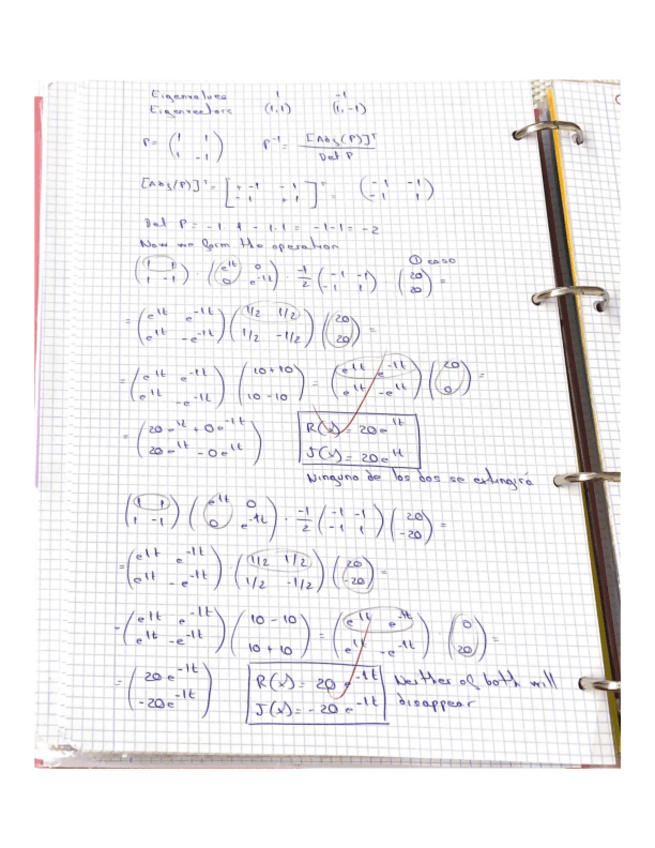 Eigenvalues 1 -1
Eigenvectors (1,1) (1,-1)
P= (1 1; 1 -1) P⁻¹= [Adj(P)]ᵀ / Det P
[Adj(P)]ᵀ= [+ -1 -1; -1 +1]ᵀ = (-1 -1; -1 1)
Det P = -1·1 - 1·1 = -1-1= -2
Now we form the operation
① caso
(1 1; 1 -1) · (e^1t 0; 0 e^-1t) · -1/2 (-1 -1; -1 1) (20; 20) =
= (e^1t e^-1t; e^1t -e^-1t) (1/2 1/2; 1/2 -1/2) (20; 20) =
= (e^1t e^-1t; e^1t -e^-1t) (10+10; 10-10) = (e^1t e^-1t; e^1t -e^1t) (20; 0) =
= (20e^1t + 0e^-1t; 20e^1t - 0e^1t) R(x)= 20e^1t
J(x)= 20e^1t
Ninguno de los dos se extingirá
(1 1; 1 -1) (e^1t 0; 0 e^-1t) · -1/2 (-1 -1; -1 1) (20; -20) =
= (e^1t e^-1t; e^1t -e^-1t) (1/2 1/2; 1/2 -1/2) (20; -20) =
= (e^1t e^-1t; e^1t -e^-1t) (10-10; 10+10) = (e^1t e^-1t; e^1t -e^-1t) · (0; 20) =
= (20e^-1t; -20e^-1t) R(x)= 20e^-1t Neither of both will
J(x)= -20e^-1t disappear